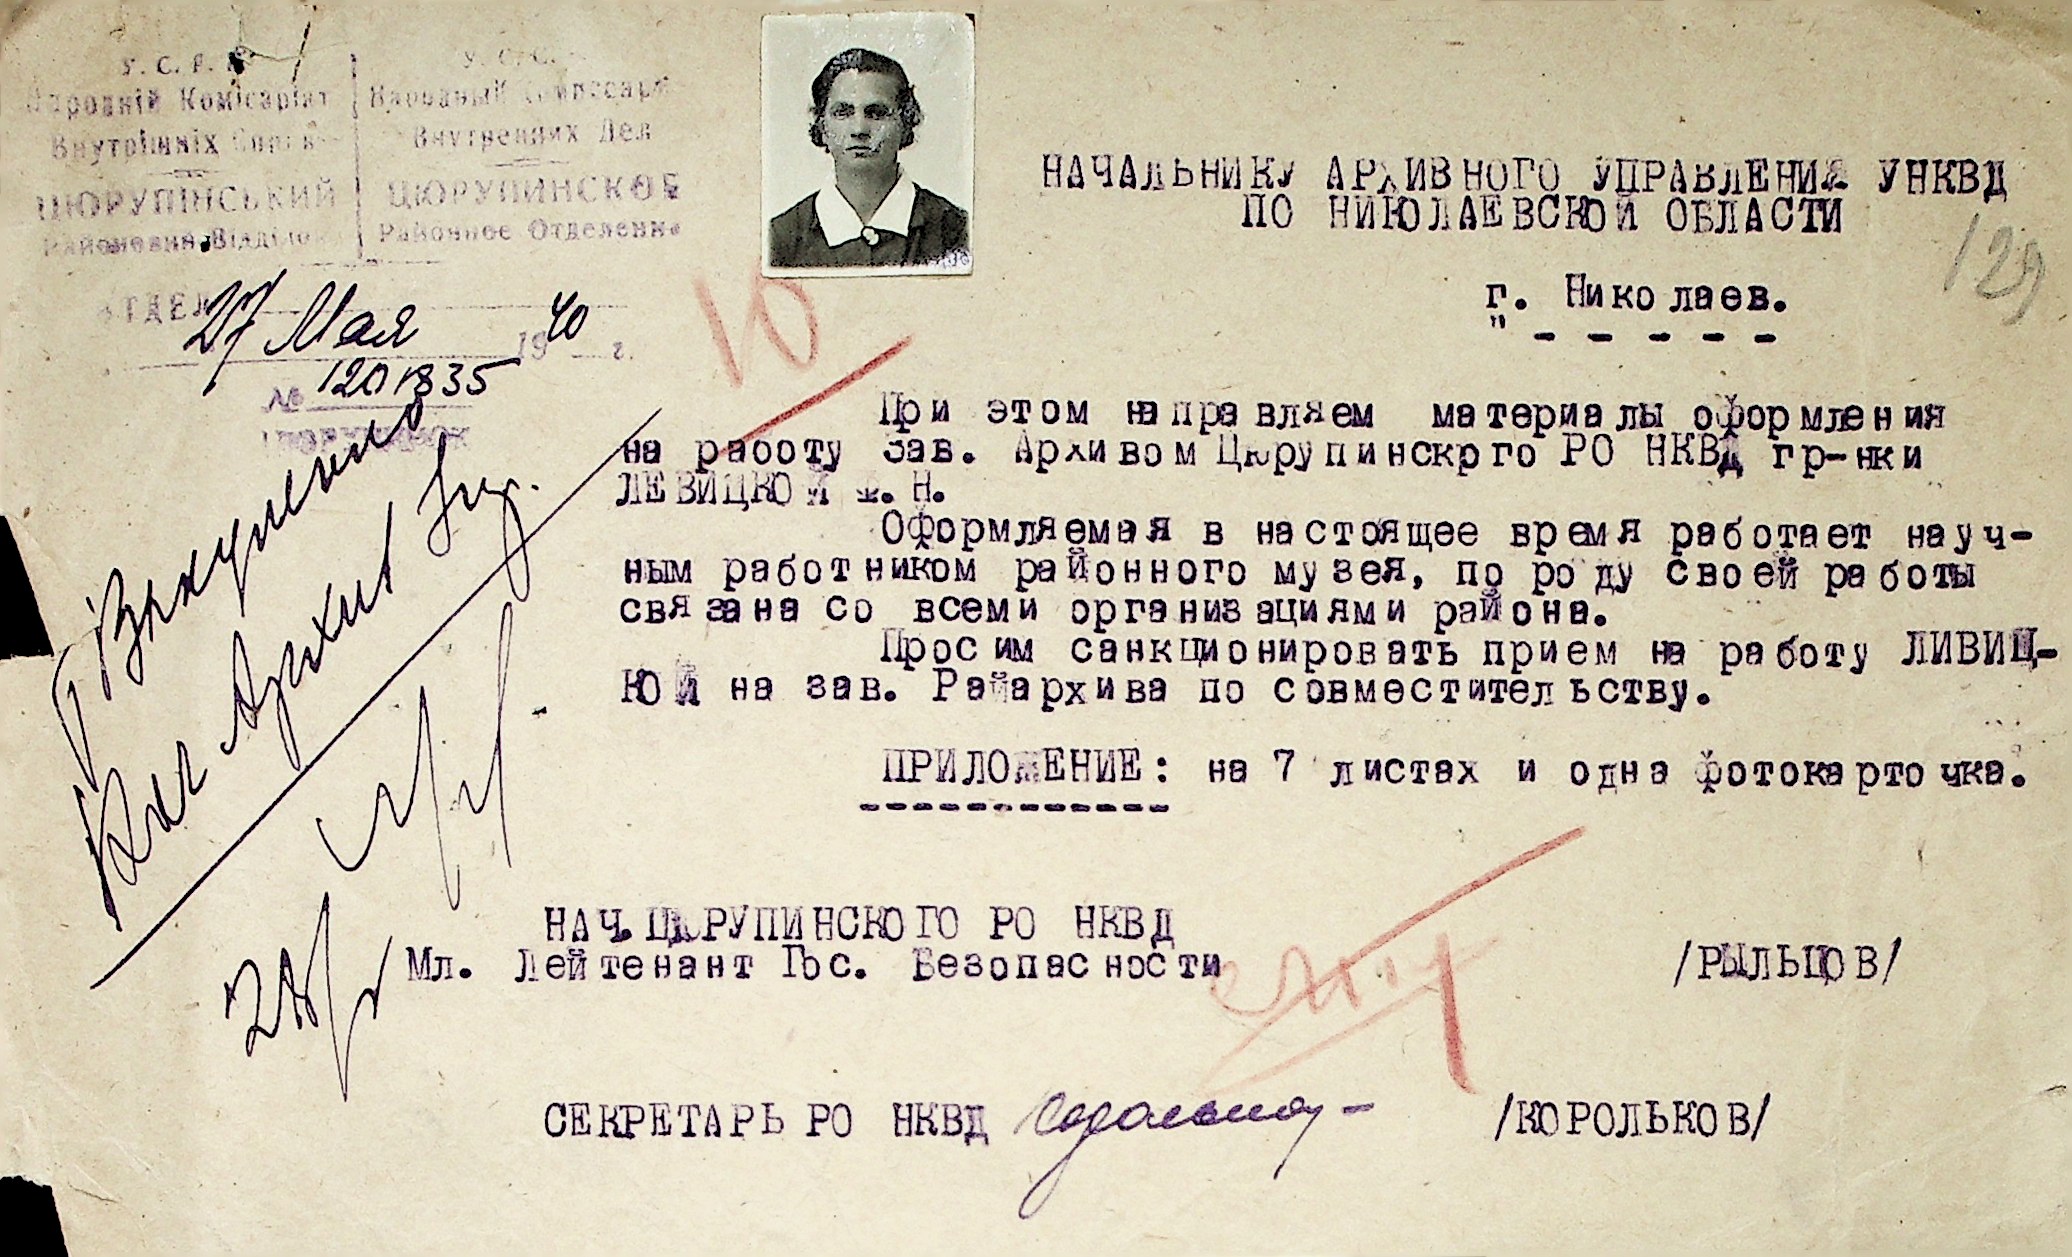 У. С. Р. Р.
Народній Комісаріат
Внутрішніх Справ
ЦЮРУПІНСЬКИЙ
Районовий Відділок
У. С. С.
Народный Комиссариат
Внутренних Дел
ЦЮРУПИНСКОЕ
Районное Отделение
ОТДЕЛ
27 Мая 1940 г.
№ 1201835
НАЧАЛЬНИКУ АРХИВНОГО УПРАВЛЕНИЯ УНКВД
ПО НИКОЛАЕВСКОЙ ОБЛАСТИ
129
г. Николаев.
" - - - - -
10
При этом направляем материалы оформления
на работу Зав. Архивом Цюрупинского РО НКВД гр-нки
ЛЕВИЦКОЙ Н.
Оформляемая в настоящее время работает науч-
ным работником районного музея, по роду своей работы
связана со всеми организациями района.
Просим санкционировать прием на работу ЛИВИЦ-
КОЙ на зав. Райархива по совместительству.
ПРИЛОЖЕНИЕ: на 7 листах и одна фотокарточка.
НАЧ. ЦЮРУПИНСКОГО РО НКВД
Мл. Лейтенант Гос. Безопасности /РЫЛЬЦОВ/
СЕКРЕТАРЬ РО НКВД /КОРОЛЬКОВ/